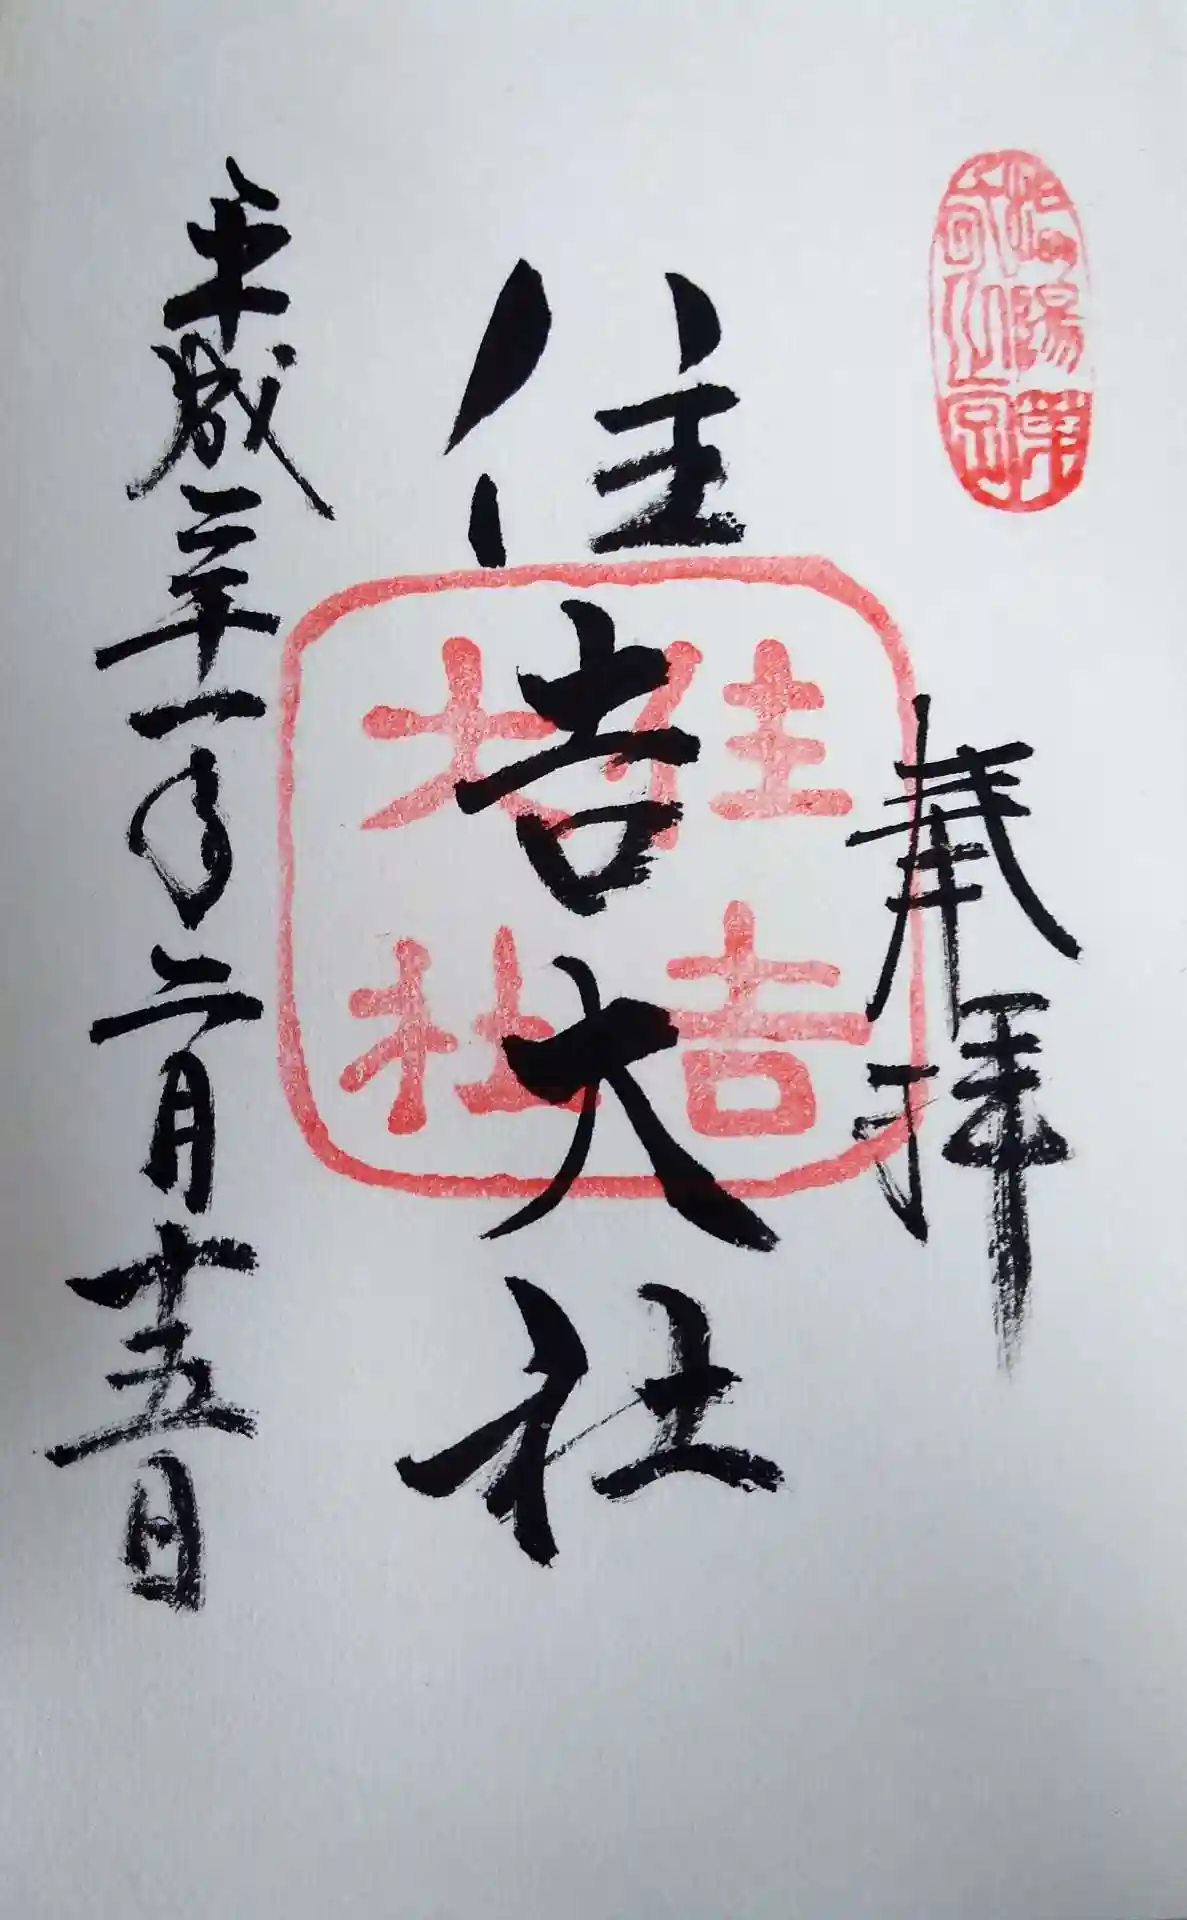 奉拝
住吉大社
平成三十一年二月十五日
住吉
大社